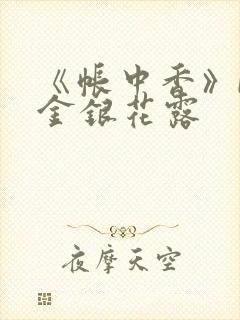 《帐中香》
金银花露
夜摩天空